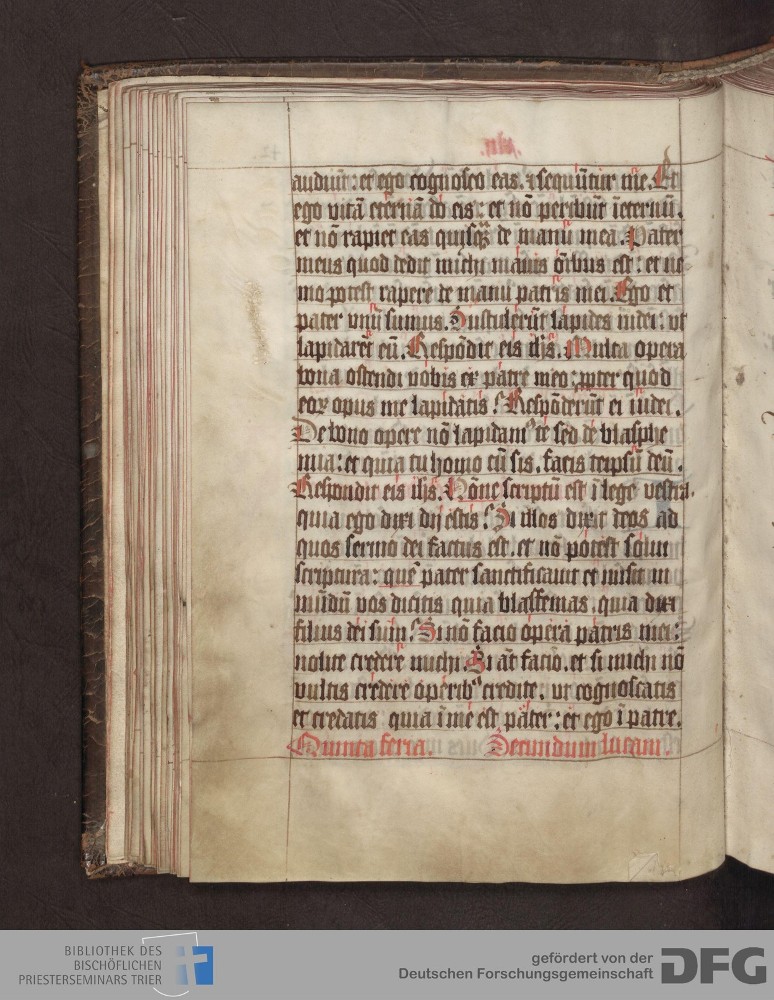 audiūt: et ego cognosco eas. ⁊ sequūtur me. Et
ego vitā eternā do eis: et nō peribūt ī eternū.
et nō rapiet eas quisqȝ de manu mea. Pater
meus quod dedit michi maius oībus est: et ne
mo potest rapere de manu patris mei. Ego et
pater vnū sumus. Sustulerūt lapides iudei: vt
lapidarēt eū. Respōdit eis ihs. Multa opera
bona ostendi vobis ex patre meo: ꝓpter quod
eoꝝ opus me lapidatis? Respōderūt ei iudei.
De bono opere nō lapidamꝰ te sed de blasphe
mia: et quia tu homo cū sis. facis teipsū deū.
Respondit eis ihs. Nōne scriptū est ī lege vestra.
quia ego dixi dij estis? Si illos dixit deos ad
quos sermo dei factus est. et nō potest solui
scriptura: quē pater sanctificauit et misit in
mūdū vos dicitis quia blasfemas. quia dixi
filius dei sum? Si nō facio opera patris mei:
nolite credere michi. Si aūt facio. et si michi nō
vultis credere operibꝰ credite. vt cognoscatis
et credatis quia ī me est pater: et ego ī patre.
Quinta feria. Secundum lucam.
BIBLIOTHEK DES
BISCHÖFLICHEN
PRIESTERSEMINARS TRIER
gefördert von der
Deutschen Forschungsgemeinschaft
DFG